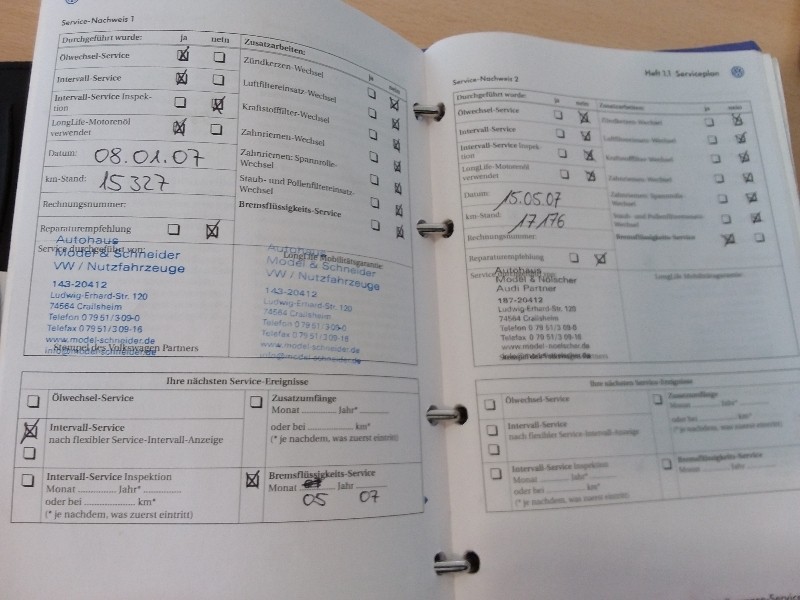 Service-Nachweis 1
Durchgeführt wurde: ja nein
Ölwechsel-Service
Intervall-Service
Intervall-Service Inspek-
tion
LongLife-Motorenöl
verwendet
Datum: 08.01.07
km-Stand: 15 327
Rechnungsnummer:
Reparaturempfehlung
Service durchgeführt von:
Autohaus
Model & Schneider
VW / Nutzfahrzeuge
143-20412
Ludwig-Erhard-Str. 120
74564 Crailsheim
Telefon 0 79 51/3 09-0
Telefax 0 79 51/3 09-16
www.model-schneider.de
info@model-schneider.de
Stempel des Volkswagen Partners
Zusatzarbeiten: ja nein
Zündkerzen-Wechsel
Luftfiltereinsatz-Wechsel
Kraftstofffilter-Wechsel
Zahnriemen-Wechsel
Zahnriemen: Spannrolle-
Wechsel
Staub- und Pollenfiltereinsatz-
Wechsel
Bremsflüssigkeits-Service
LongLife Mobilitätsgarantie
Autohaus
Model & Schneider
VW / Nutzfahrzeuge
143-20412
Ludwig-Erhard-Str. 120
74564 Crailsheim
Telefon 0 79 51/3 09-0
Telefax 0 79 51/3 09-16
www.model-schneider.de
info@model-schneider.de
Ihre nächsten Service-Ereignisse
Ölwechsel-Service
Intervall-Service
nach flexibler Service-Intervall-Anzeige
Intervall-Service Inspektion
Monat Jahr*
oder bei km*
(* je nachdem, was zuerst eintritt)
Zusatzumfänge
Monat Jahr*
oder bei km*
(* je nachdem, was zuerst eintritt)
Bremsflüssigkeits-Service
Monat Jahr
05 07
Heft 1.1 Serviceplan
Service-Nachweis 2
Durchgeführt wurde: ja nein
Ölwechsel-Service
Intervall-Service
Intervall-Service Inspek-
tion
LongLife-Motorenöl
verwendet
Datum: 15.05.07
km-Stand: 17 176
Rechnungsnummer:
Reparaturempfehlung
Autohaus
Model & Nölscher
Audi Partner
187-20412
Ludwig-Erhard-Str. 120
74564 Crailsheim
Telefon 0 79 51/3 09-0
Telefax 0 79 51/3 09-16
www.model-noelscher.de
Zusatzarbeiten: ja nein
Zündkerzen-Wechsel
Luftfiltereinsatz-Wechsel
Kraftstofffilter-Wechsel
Zahnriemen-Wechsel
Zahnriemen: Spannrolle-
Wechsel
Staub- und Pollenfiltereinsatz-
Wechsel
Bremsflüssigkeits-Service
LongLife Mobilitätsgarantie
Ihre nächsten Service-Ereignisse
Ölwechsel-Service
Intervall-Service
nach flexibler Service-Intervall-Anzeige
Intervall-Service Inspektion
Monat Jahr*
oder bei km*
(* je nachdem, was zuerst eintritt)
Zusatzumfänge
Monat Jahr*
oder bei km*
(* je nachdem, was zuerst eintritt)
Bremsflüssigkeits-Service
Monat Jahr